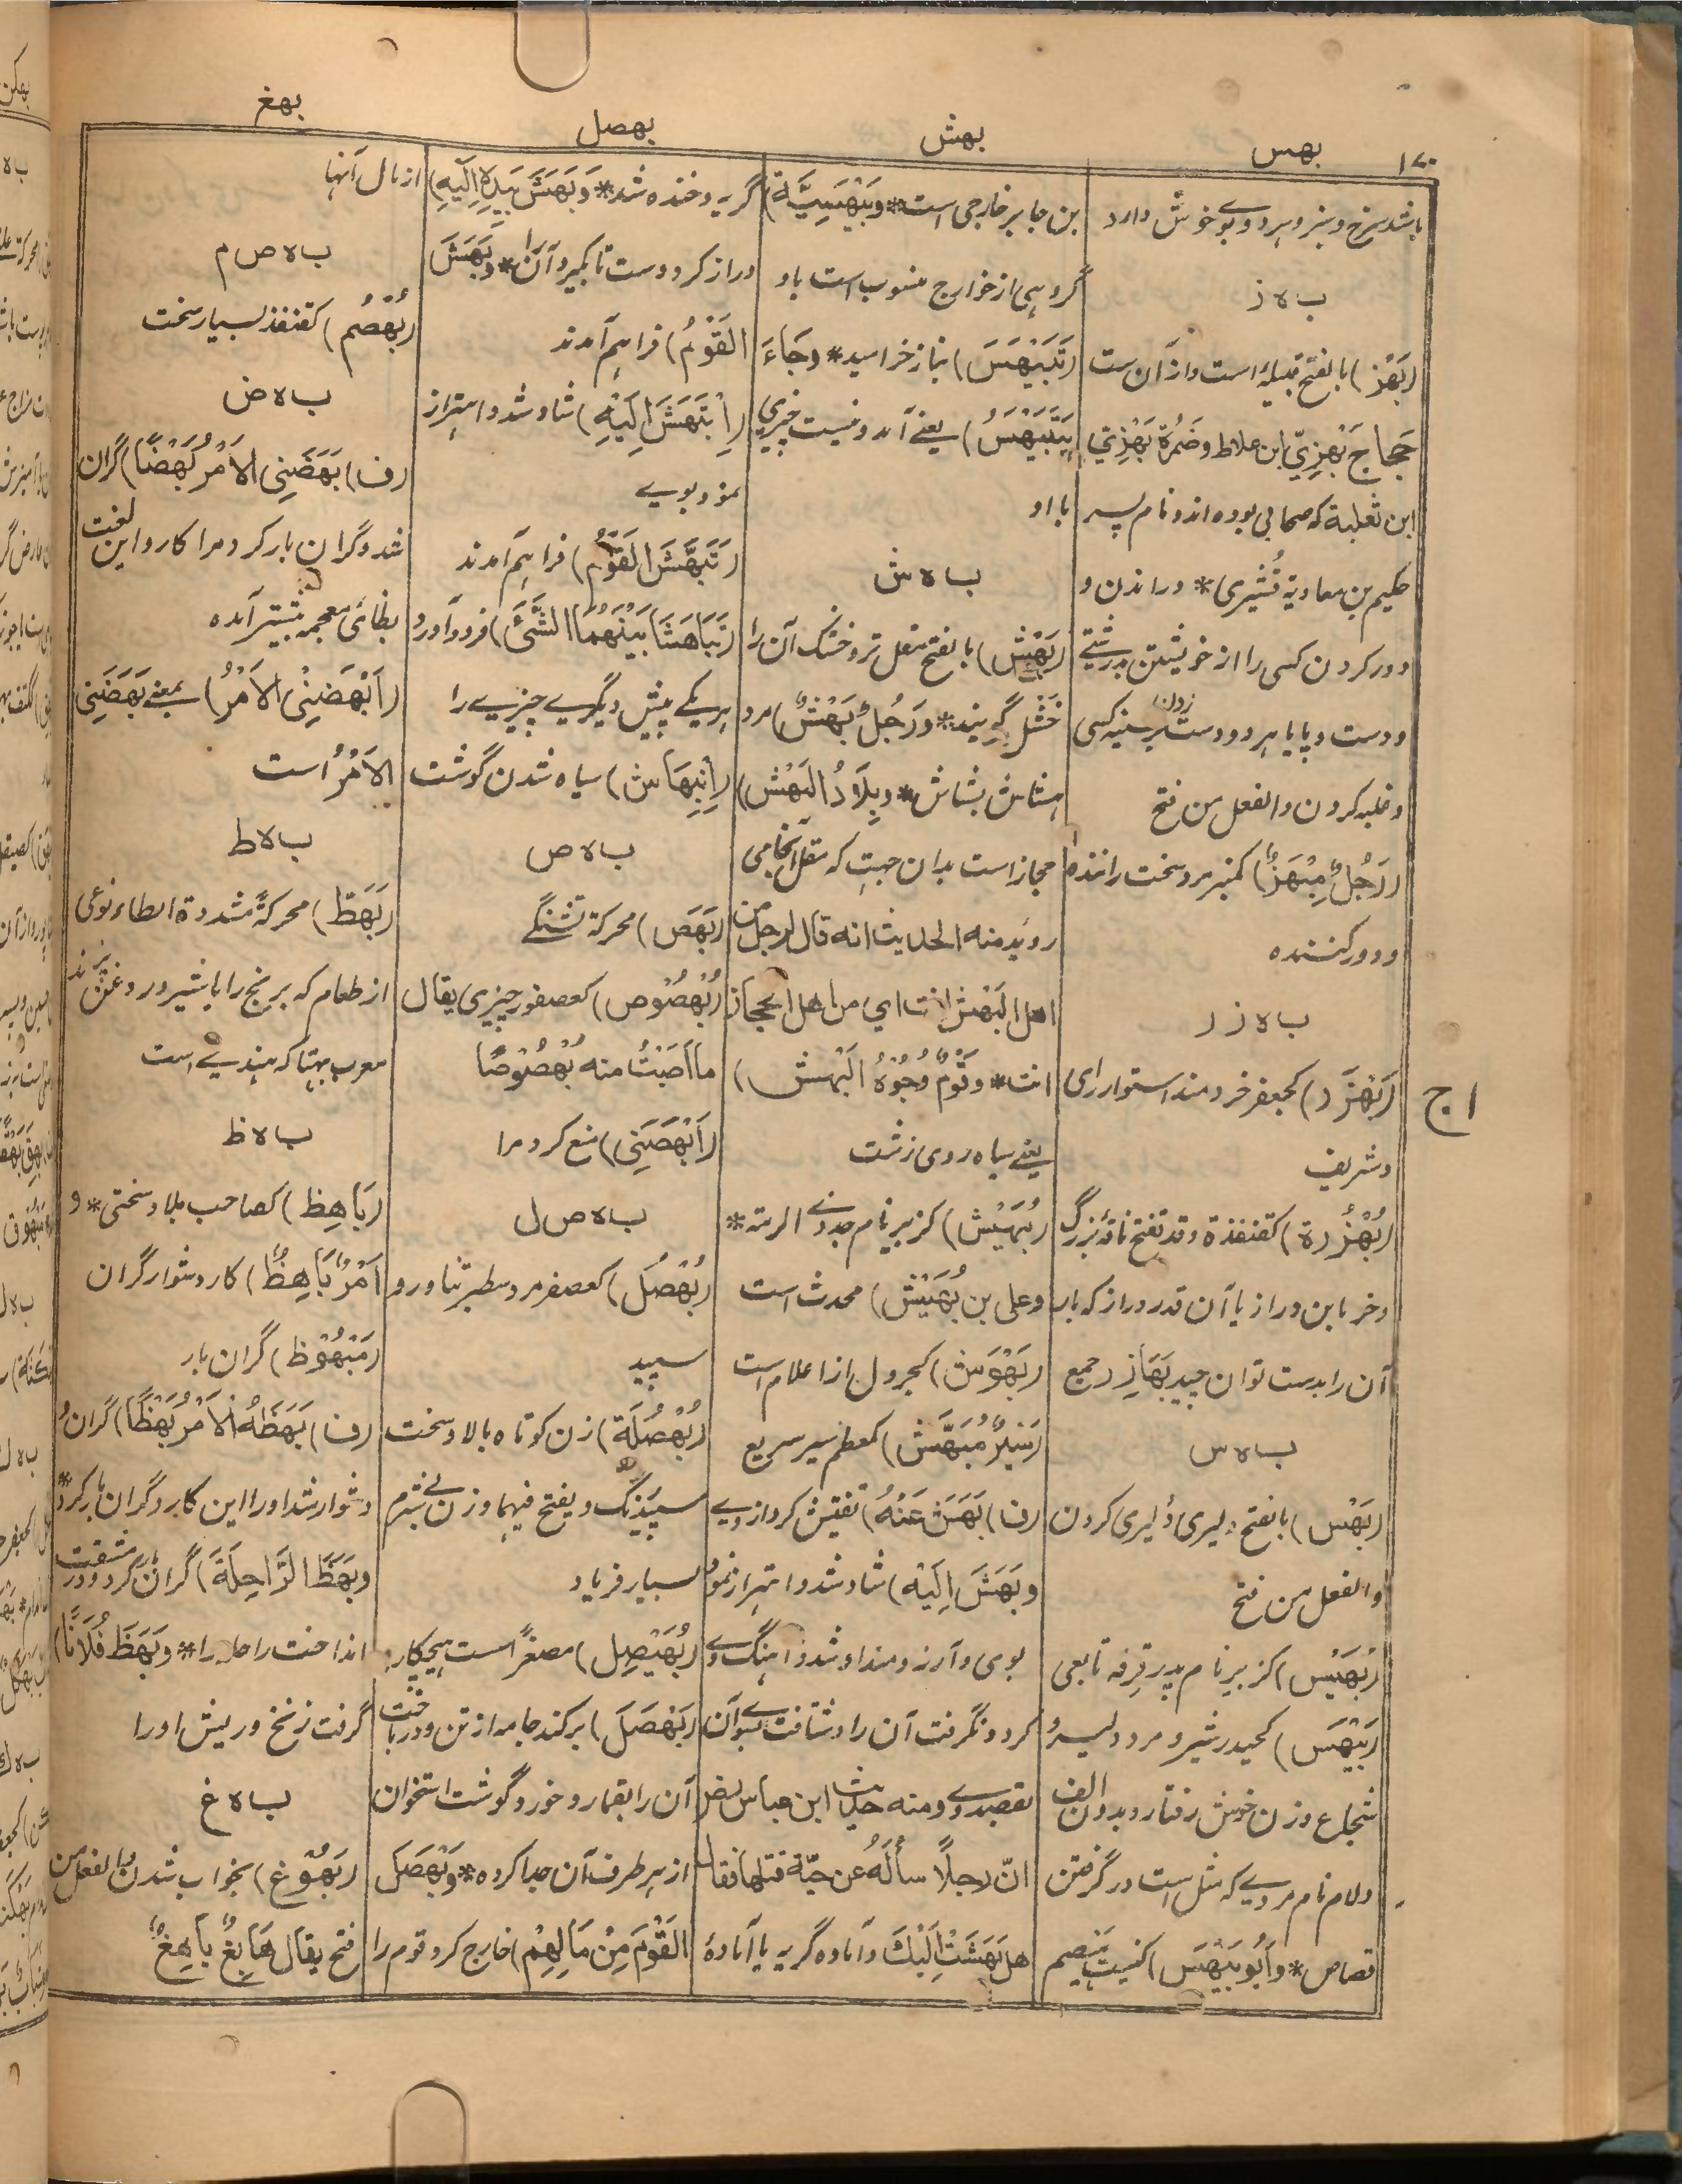 ۱۷۰
بهس
بهش
بهصل
بهغ
باشد سرخ و سبز و هر دو بوی خوش دارد
ب ه ز
(بَهْز) بالفتح قبیلهٔ است و ازآن ست
حَجاج بَهْزِيّ ابن علاط و ضَمْرَة بَهْزِيّ
ابن ثعلبة که صحابی بوده اند و نام پسر
حکیم بن معاویة قُشَیری * و راندن و
دور کردن کسی را از خویشتن بدرشتی
و دست و پا یا هر دو دست بر سینه کسی زدن
و غلبه کردن والفعل من فتح
(رَجُلٌ مِبْهَزٌ) کمنبر مرد سخت راننده
و دور کننده
ب ه ز ر
(بَهْزَر) کجعفر خردمند استوار رای
و شریف
(بُهْزُرة) کقنفذة وقد تفتح ناقهٔ بزرگ
و خرمابن دراز یا آن قدر دراز که بار
آن را بدست توان چید بَهَازِر جمع
ب ه س
(بَهْس) بالفتح دلیری و دلیری کردن
والفعل من فتح
(بُهَیْس) کزبیر نام پدر قِرفه تابعی
(بَیْهَس) کحیدر شیر و مرد دلیر و
شجاع و زن خوش رفتار و بدون الف
و لام نام مردی که مثل است در گرفتن
قصاص * و أَبُو بَیْهَس) کنیت هیصم
بن جابر خارجی است * وبَیْهَسِیَّة)
گروهی از خوارج منسوب است باو
(تَبَیْهَسَ) بناز خرامید * وجَاءَ
یَتَبَیْهَسُ) یعنے آمد و نیست خبری
با او
ب ه ش
(بَهْش) بالفتح مقل تر و خشک آن را
خَشْل گویند * ورَجُلٌ بَهْشٌ) مرد
هشاش بشاش * وبِلَادُ البَهْش)
حجاز است بدان جهت که مقل آنجا می
روید منه الحدیث انه قال لرجل من
اهل البَهْش انت اي من اهل الحجاز
انت * وقَوْمٌ وُجُوْهُ البَهْش)
یعنے سیاه روی زشت
(بُهَیْش) کزبیر نام جد ذی الرمة *
وعلی بن بُهَیْش) محدث است
(بَهْوَش) کجرول از اعلام است
(سَیْرٌ مُبَهَّش) کمعظم سیر سریع
(ف) بَهَشَ عَنْهُ) تفتیش کرد از وے
وبَهَشَ اِلَیْه) شاد شد و اهتزاز نمود
بوی و آرزومند او شد و آهنگ وے
کرد و نگرفت آن را و شتافت بسوی آن
بقصد وے ومنه حدیث ابن عباس
انّ رجلًا سأَلَهُ عن حيّة قتلها فقال
هل بَهَشَتْ اِلَیْكَ و آماده گریه یا آمادهٔ
گریه و خنده شد * وبَهَشَ بِیَدِهِ اِلَیْهِ)
دراز کرد دست تا بگیرد آن را * وبَهَشَ
القَوْمُ) فراهم آمدند
(اِبْتَهَشَ اِلَیْهِ) شاد شد و اهتزاز
نمود بویے
(تَبَهَّشَ القَوْمُ) فراهم آمدند
(تَبَاهَشَا بَیْنَهُمَا الشَّئَ) فرود آورد
هر یکے پیش دیگرے چیزے را
(اِبْهِهَاش) سیاه شدن گوشت
ب ه ص
(بَهَص) محرکة تشنگے
(بُهْصُوْص) کعصفور چیزی یقال
ما اَصَبْتُ منه بُهْصُوْصًا
(اَبْهَصَنِی) منع کرد مرا
ب ه ص ل
(بُهْصُل) کعصفر مرد سطبر تناور و
سپید
(بُهْصُلَة) زن کوتاه بالا و سخت
سپیدرنگ و یفتح فیهما و زن بی شرم
بسیار فریاد
(بُهَیْصِل) مصغرًا است هیچکاره
(بَهْصَلَ) برکند جامه از تن و درباخت
آن را بقمار و خورد گوشت استخوان
از هر طرف آن جدا کرده * وبَهْصَلَ
القَوْمَ مِنْ مَالِهِمْ) خارج کرد قوم را
از مال آنها
ب ه ص م
(بُهْصُم) کقنفذ بسیار سخت
ب ه ض
(ف) بَهَضَنِی الاَمْرُ بَهْضًا) گران
شد و گران بار کرد مرا کار و این لغت
بظائ معجمه بیشتر آمده
(اَبْهَضَنِیْ الاَمْرُ) بمعنے بَهَضَنِی
الاَمْرُ است
ب ه ط
(بَهَطّ) محرکةً مشددة الطاء نوعی
از طعام که برنج را با شیر و روغن پزند
معرب بهتا که هندیے است
ب ه ظ
(بَاهِظ) کصاحب بلا و سختی * و
اَمْرٌ بَاهِظٌ) کار دشوار گران
(مَبْهُوْظ) گران بار
(ف) بَهَظَهُ الاَمْرُ بَهْظًا) گران و
دشوار شد او را این کار و گران بار کرد *
وبَهَظَ الرَّاحِلَةَ) گران بار کرد و در مشقت
انداخت راحله را * وبَهَظَ فُلَانًا)
گرفت زنخ و ریش او را
ب ه غ
(بُهُوْغ) بخواب شدن والفعل من
فتح یقال هَابِغٌ بَاهِغٌ
ا ج